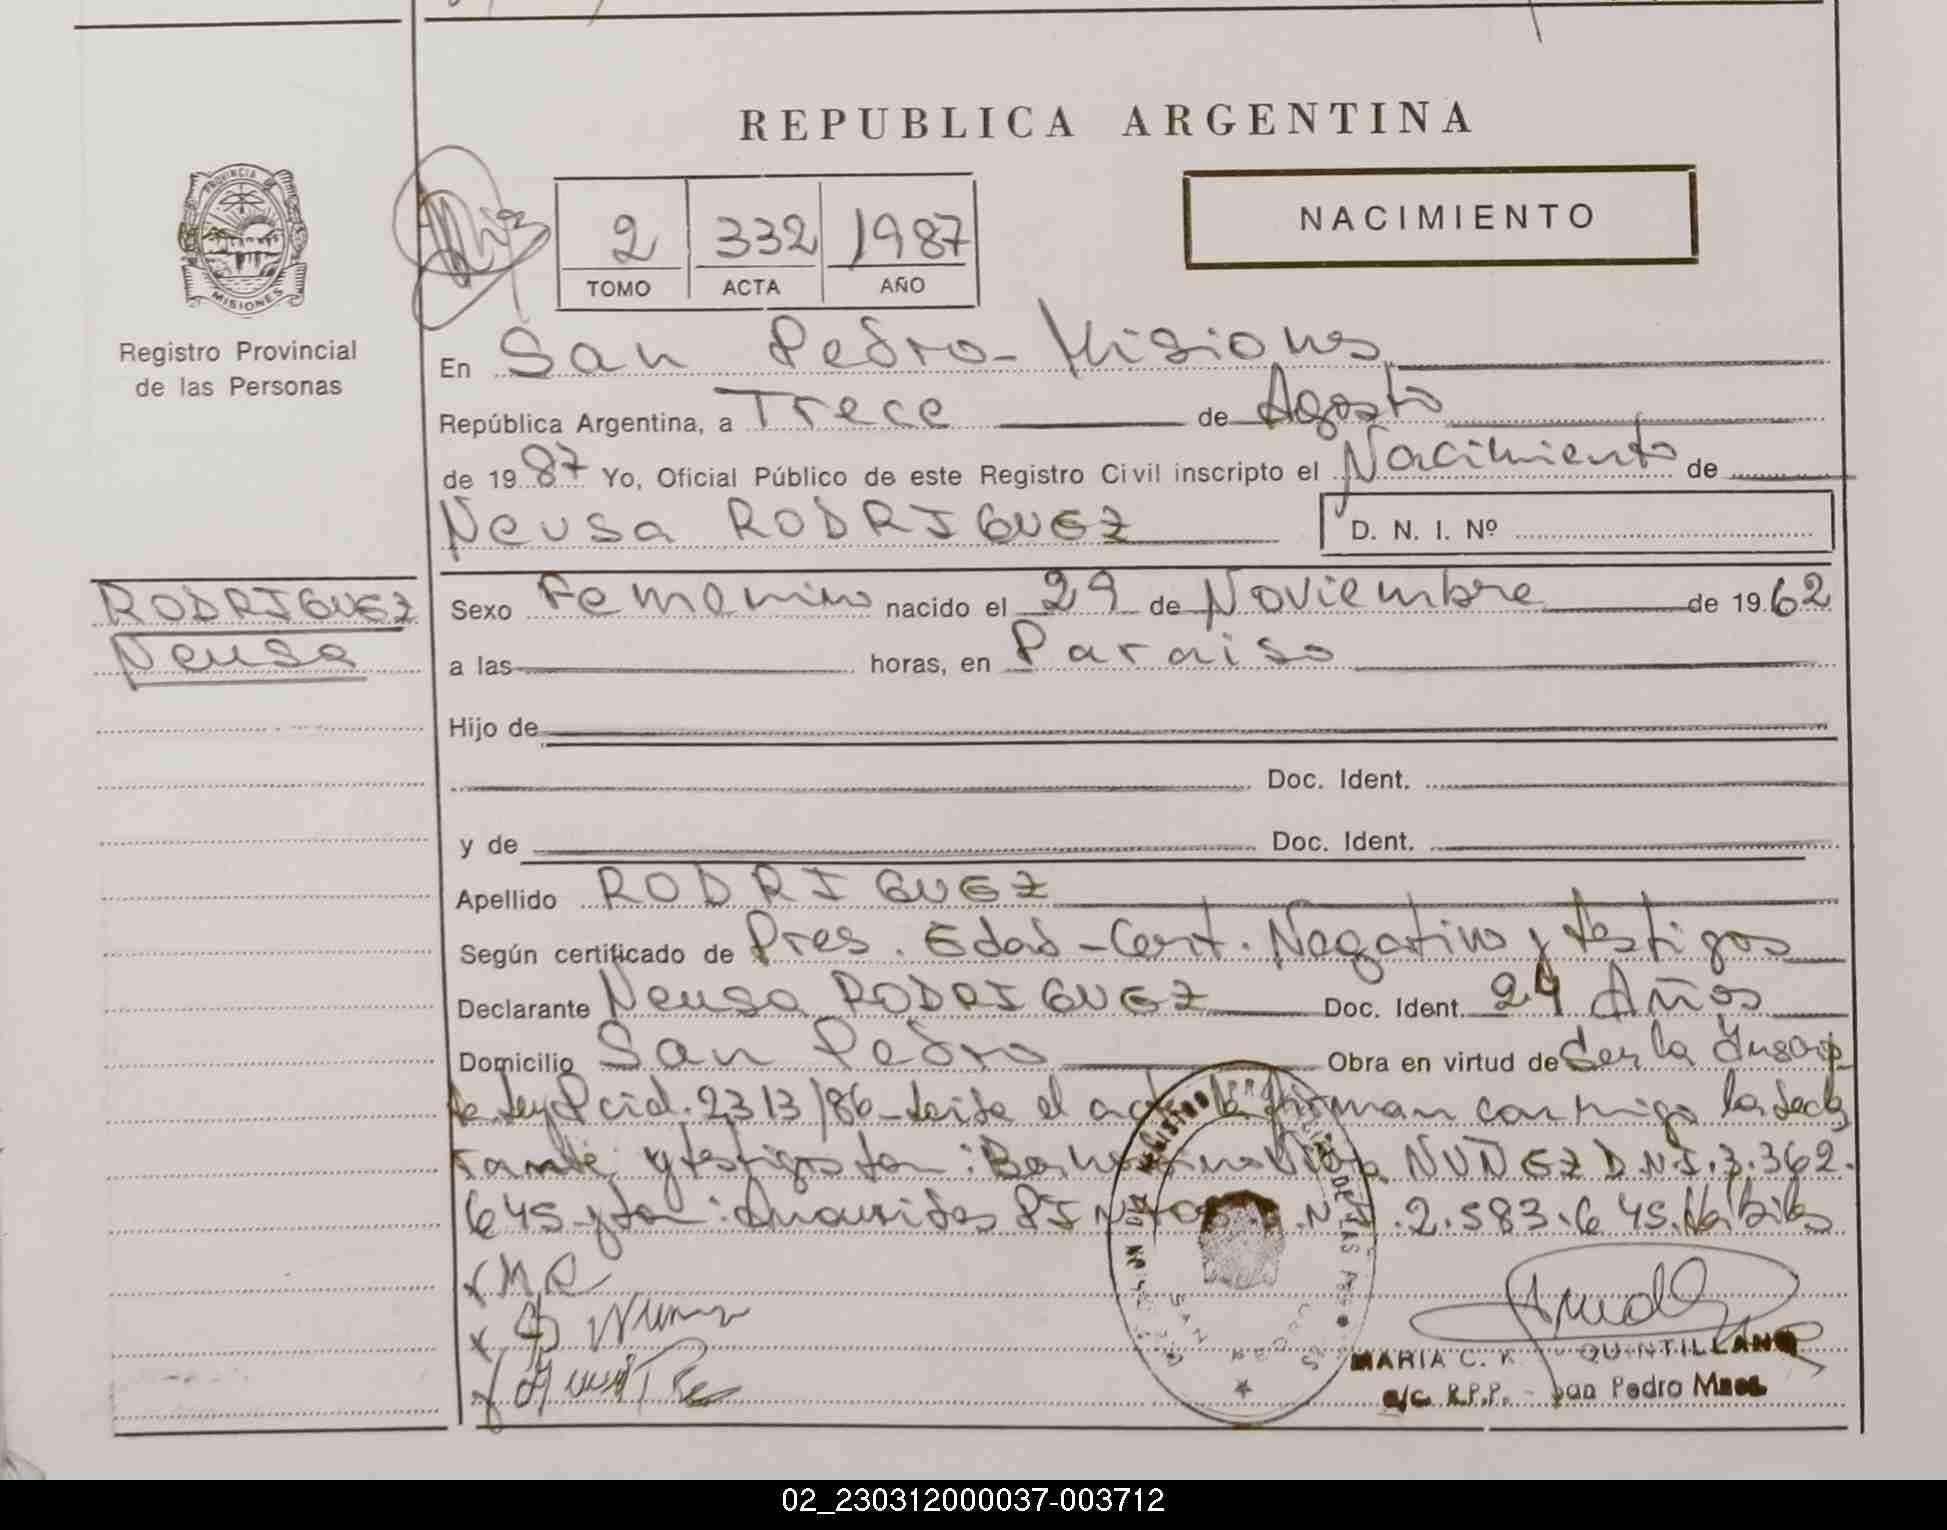 REPUBLICA ARGENTINA
PROVINCIA DE
MISIONES
Registro Provincial
de las Personas
2 332 1987
TOMO ACTA AÑO
NACIMIENTO
En San Pedro - Misiones
República Argentina, a Trece de Agosto
de 1987 Yo, Oficial Público de este Registro Civil inscripto el Nacimiento de
Neusa RODRIGUEZ D. N. I. Nº
RODRIGUEZ
Neusa
Sexo Femenino nacido el 29 de Noviembre de 1962
a las horas, en Paraiso
Hijo de
Doc. Ident.
y de Doc. Ident.
Apellido RODRIGUEZ
Según certificado de Pres. Edad - Cert. Negativo y testigos
Declarante Neusa RODRIGUEZ Doc. Ident. 24 Años
Domicilio San Pedro Obra en virtud de Ser la Inscrip
te Ley Pcial. 2313/86 - Leida el acta la firman conmigo la decla
rante y testigos Don: NUÑEZ D.N.I. 3.362.
645 y Don: PINTOS D.N.I. 2.583.645. Habiles
x N R
x B Nunez
x
SAN PEDRO
MARIA C. QUINTILLANO
a/c. R.P.P. - San Pedro Mnes.
02_230312000037-003712